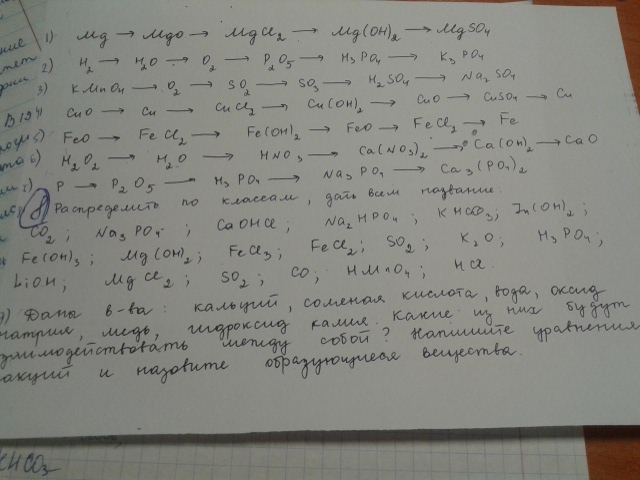 1) Mg → MgO → MgCl₂ → Mg(OH)₂ → MgSO₄
2) H₂ → H₂O → O₂ → P₂O₅ → H₃PO₄ → K₃PO₄
3) KMnO₄ → O₂ → SO₂ → SO₃ → H₂SO₄ → Na₂SO₄
CuO → Cu → CuCl₂ → Cu(OH)₂ → CuO → CuSO₄ → Cu
5) FeO → FeCl₂ → Fe(OH)₂ → FeO → FeCl₂ → Fe
6) H₂O₂ → H₂O → HNO₃ → Ca(NO₃)₂ → Ca(OH)₂ → CaO
P → P₂O₅ → H₃PO₄ → Na₃PO₄ → Ca₃(PO₄)₂
8) Распределить по классам, дать всем название:
CO₂; Na₃PO₄; CaOHCl; Na₂HPO₄; KHCO₃; Zn(OH)₂;
Fe(OH)₃; Mg(OH)₂; FeCl₃; FeCl₂; SO₂; K₂O; H₃PO₄;
LiOH; MgCl₂; SO₂; CO; HMnO₄; HCl.
9) Даны в-ва: кальций, соменая кислота, вода, оксид
натрия, медь, гидроксид калия. Какие из них будут
взаимодействовать между собой? Напишите уравнения
акций и назовите образующиеся вещества.
KHCO₃